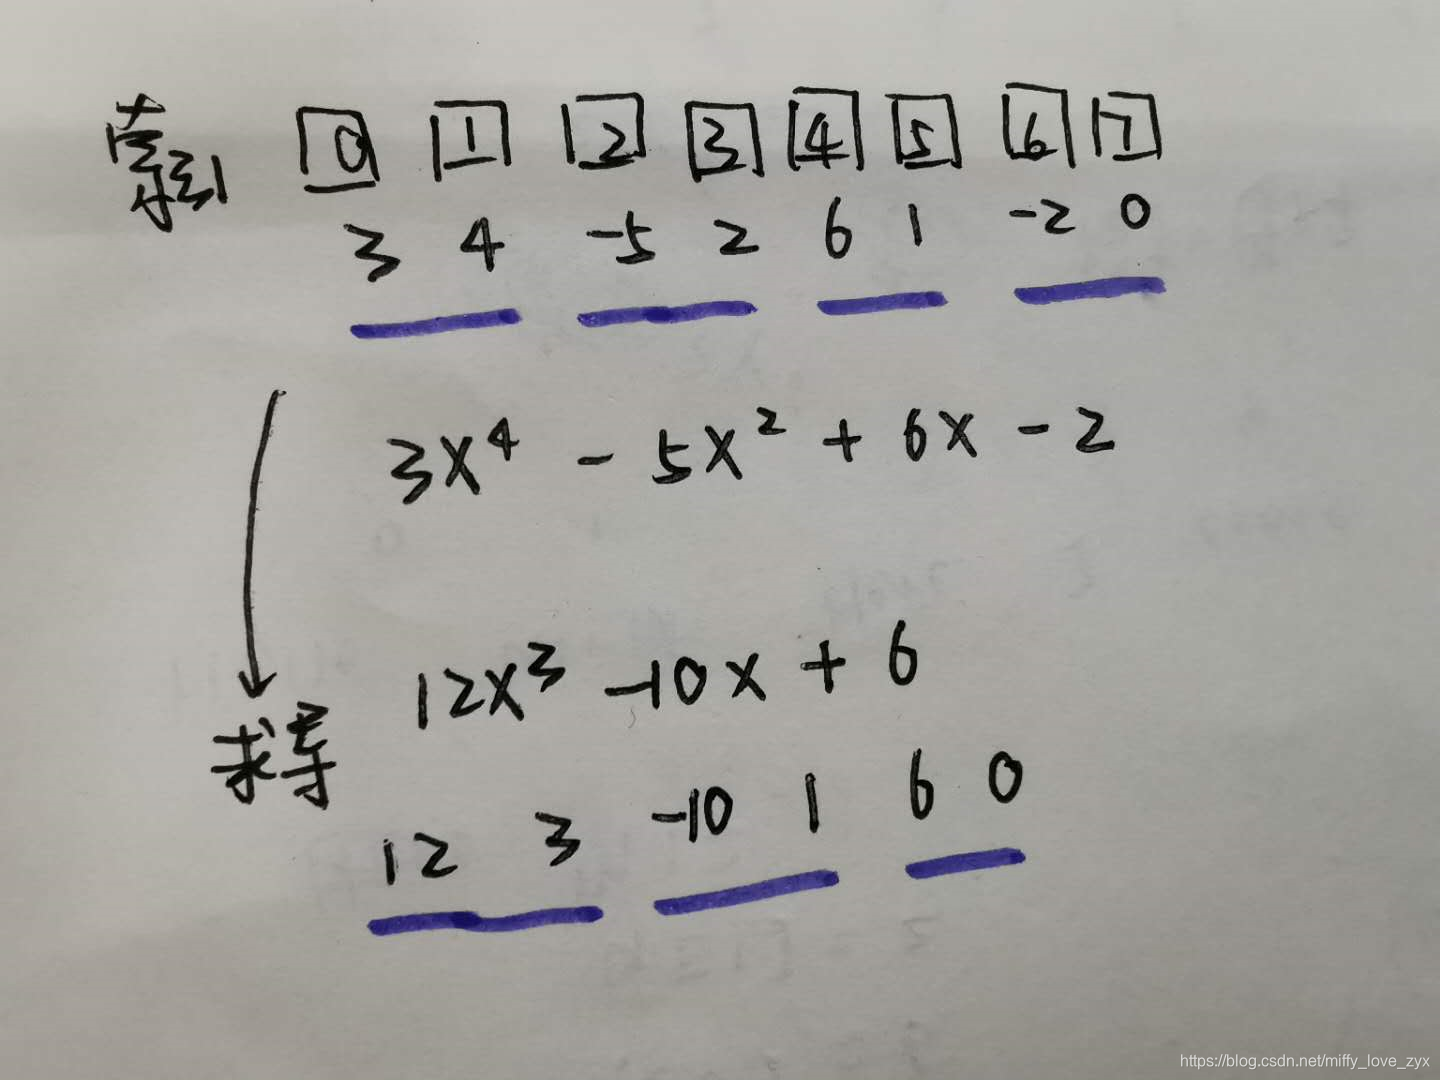 索引 0 1 2 3 4 5 6 7
3 4 -5 2 6 1 -2 0
3x⁴ - 5x² + 6x - 2
12x³ -10x + 6
求导
12 3 -10 1 6 0
https://blog.csdn.net/miffy_love_zyx